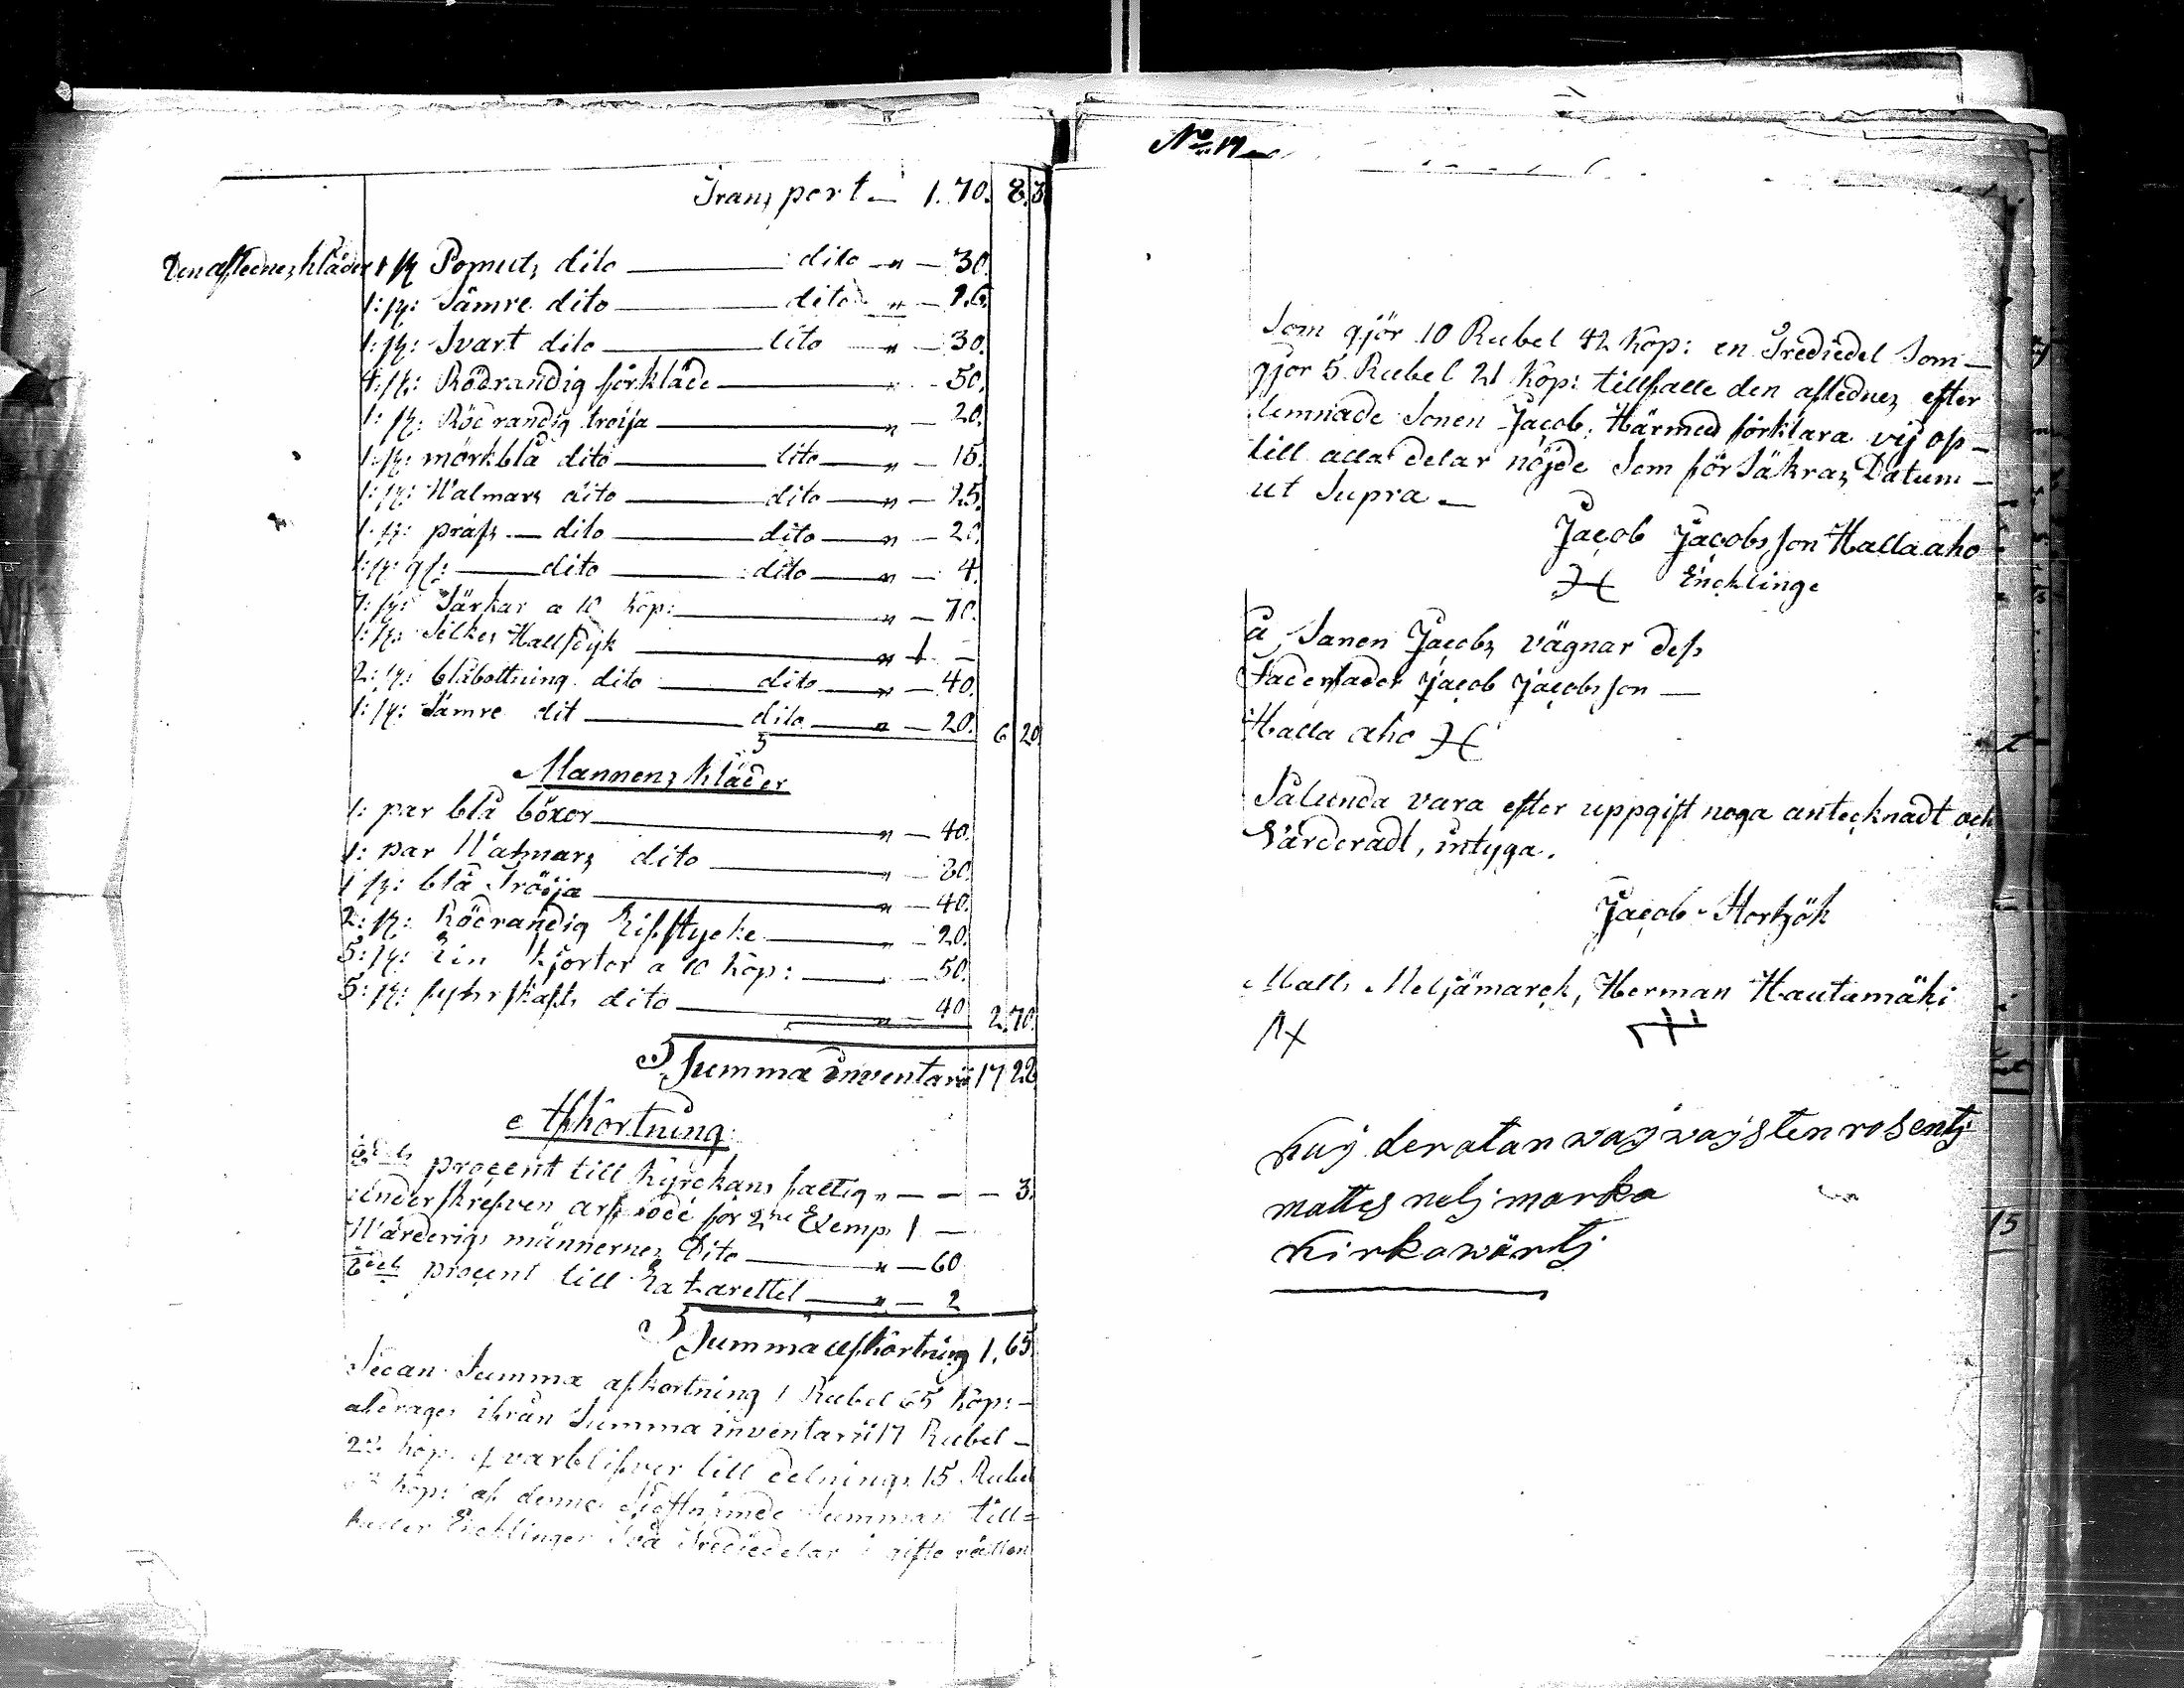 Transport — 1. 70. 8. 3
Den aflednes kläder 1 st Pomuls dito — dito — " — 30.
1: st: Sämre dito — dito " — 26.
1: st: Svart dito — dito — " — 30.
4: st: Rödrandig förkläde — " — 50.
1: st: Rödrandig tröija — " — 20.
1: st: mörkblå dito — dito — " — 15.
1: st: Walmars dito — dito — " — 25.
1: st: — dito — dito — " — 20.
1: st: gl: — dito — dito — " — 4.
7: st: Särkar a 10 kop: — " — 70.
1: st: Silkes Hallsdyk — " 1 —
2: st: blåbottning dito — dito — " — 40.
1: st: Sämre dit — dito — " — 20. 6 20
Mannens kläder
1: par blå böxor — " — 40.
1: par Walmars dito — " — 80.
1 st: blå Tröija — " — 40.
2: st: Rödrandig Lifstycke — " — 20.
5: st: Lin Kjortor a 10 kop: — 50.
5: st: dito — " — 40 2. 70.
Summa inventarii 17 22
Afkortning
procent till kyrckans fattig " — — — 3.
underskrefven arfvode för 2ne Exemp: 1 —
Wärderigs männernes Dito — " — 60
procent till Lazarettet — " — 2
Summa afkortning 1. 65.
Sedan Summa afkortning 1 Rubel 65 kop: —
afdrages ifrån Summa inventarii 17 Rubel —
22 kop: qvarblifver till delnings 15 Rubel
kop: af denne Summan till=
faller Encklingen två Trediedelar i gifto rätten
No: 19
Som gjör 10 Rubel 42 kop: en Trediedel Som —
gjör 5 Rubel 21 kop: tillfalle den aflednes efter
lemnade Sonen Jacob. Härmed förklara vij oss —
till alla delar nöjde Som försäkras Datum —
ut Supra —
Jacob Jacobsson Hallaaho
Encklinge
å Sonen Jacobs vägnar dess
Faderfader Jacob Jacobsson —
Halla aho
Sålunda vara efter uppgift noga antecknadt och
Värderadt, intyga.
Jacob Hortzök
Matts Meljämarck, Herman Hautamäki
Kuj deratan waj wajsten rosentj
mattes nelj marka
Kirkawärtj
15